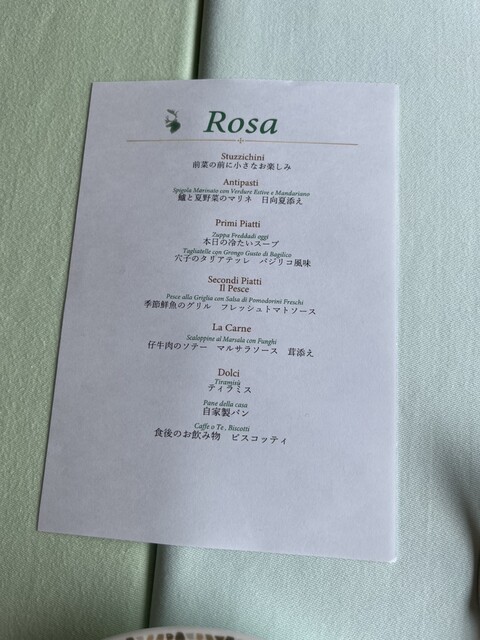 Rosa
Stuzzichini
前菜の前に小さなお楽しみ
Antipasti
Spigola Marinato con Verdure Estive e Mandariano
鱸と夏野菜のマリネ　日向夏添え
Primi Piatti
Zuppa Freddadi oggi
本日の冷たいスープ
Tagliatelle con Grongo Gusto di Bagilico
穴子のタリアテッレ　バジリコ風味
Secondi Piatti
Il Pesce
Pesce alla Griglia con Salsa di Pomodorini Freschi
季節鮮魚のグリル　フレッシュトマトソース
La Carne
Scaloppina al Marsala con Funghi
仔牛肉のソテー　マルサラソース　茸添え
Dolci
Tiramisù
ティラミス
Pane della casa
自家製パン
Caffe o Te , Biscotti
食後のお飲み物　ビスコッティ